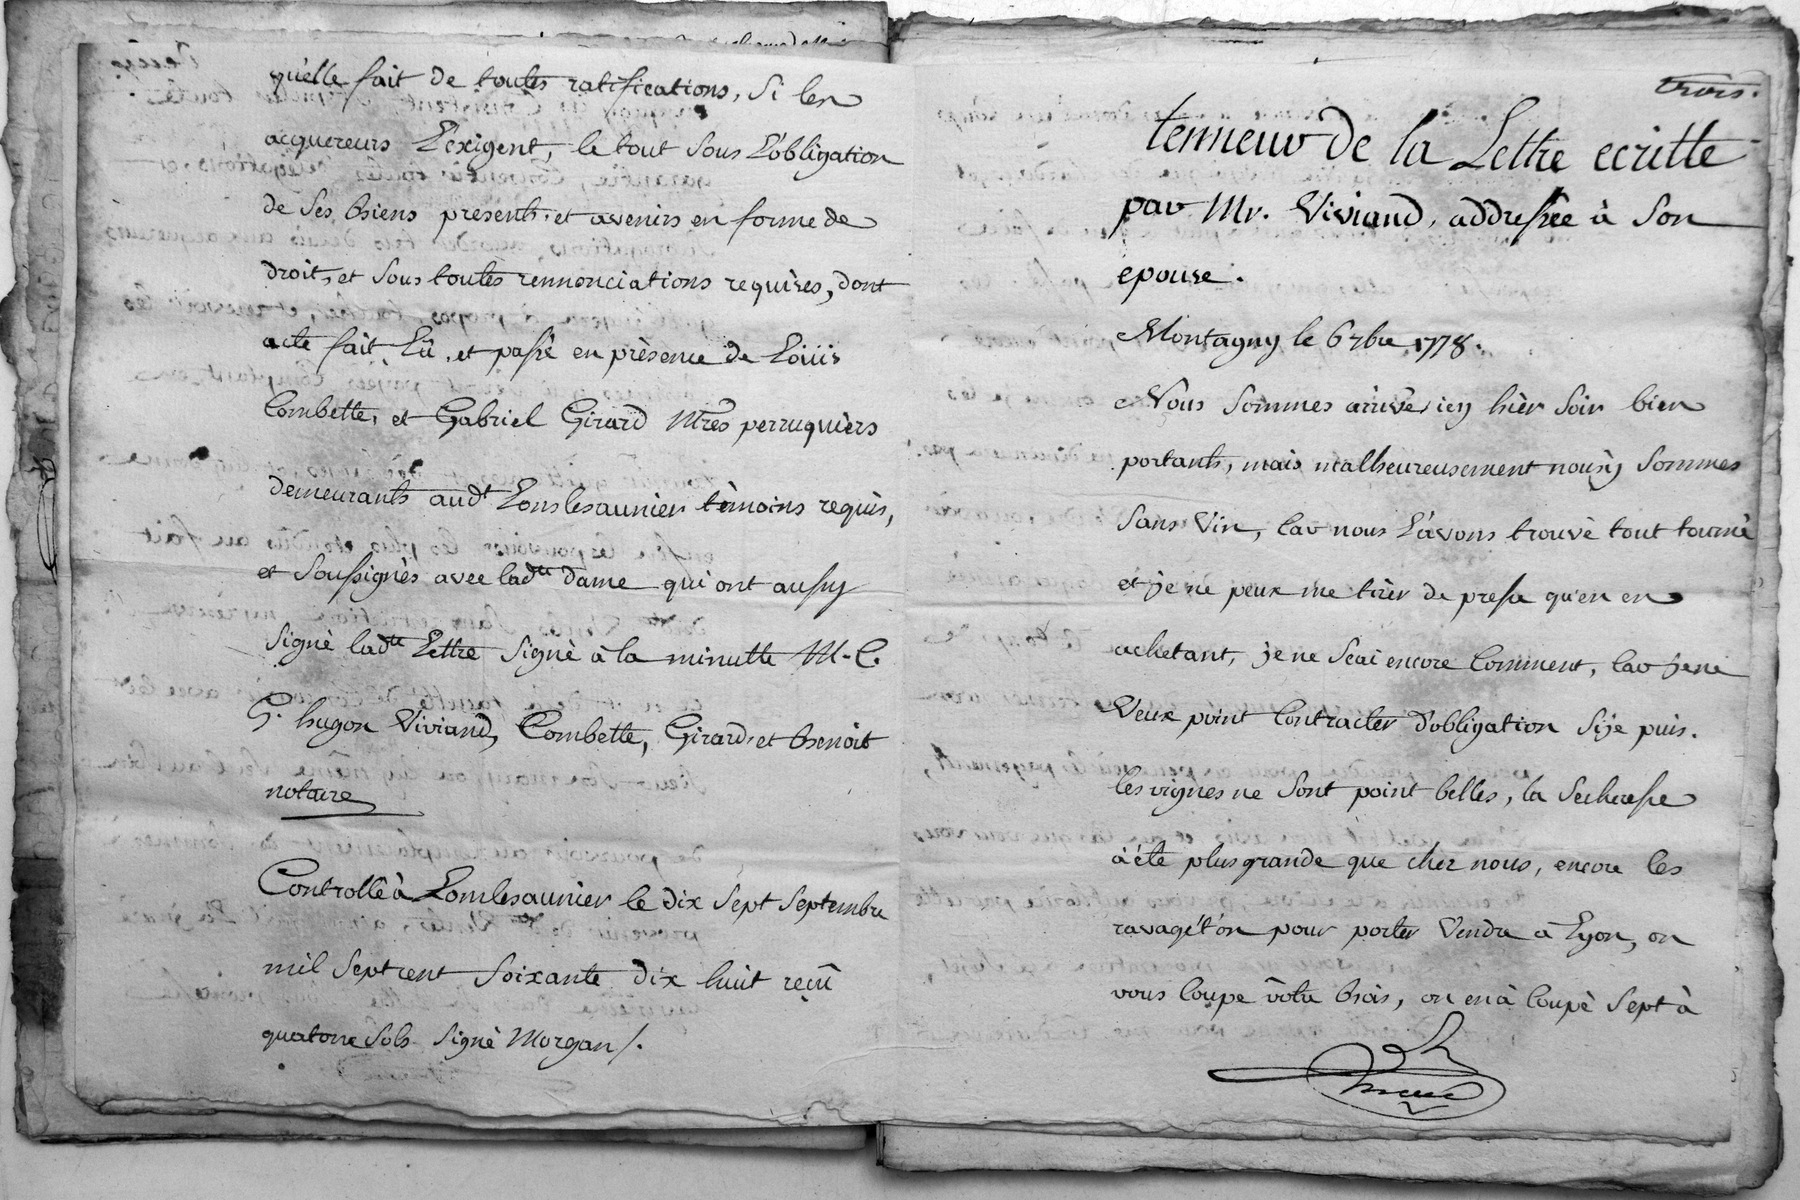 qu'elle fait de toutes ratifications, Si les
acquereurs L'exigent, le tout Sous L'obligation
de Ses biens presents, et avenirs en forme de
droit, et Sous toutes rennonciations requises, dont
acte fait Lû, et passé en prèsence de Loüis
Combette, et Gabriel Girard Mtres perruquièrs
demeurants audt Lonslesaunier tèmoins requis,
et Soussignès avec ladtte dame qui ont aussy
Signè ladtte Lettre Signè à la minutte M. C.
G. hugon Viviand, Combette, Girard, et Benoit
notaire
Controllé à Lonslesaunier le dix Sept Septembre
mil Sept cent Soixante dix huit reçû
quatorze Sols Signè Morgan /.
trois.
tenneur de la Lettre ecritte
par Mr. Viviand, addressée à Son
epouse.
Montagny le 6 7bre 1778.
Nous Sommes arrivè icy hièr Soir bien
portants, mais malheureusement nous y Sommes
Sans Vin, Car nous L'avons trouvè tout tournè
et je ne peux me tirèr de presse qu'en en
achetant, je ne Scai encore Comment, Car je ne
Veux point Contracter d'obligation Si je puis.
Les vignes ne Sont point belles, la Secheresse
à étè plus grande que chez nous, encore les
ravagét'on pour porter Vendre à Lyon, on
vous Coupe vôtre Bois, on en à Coupè Sept à